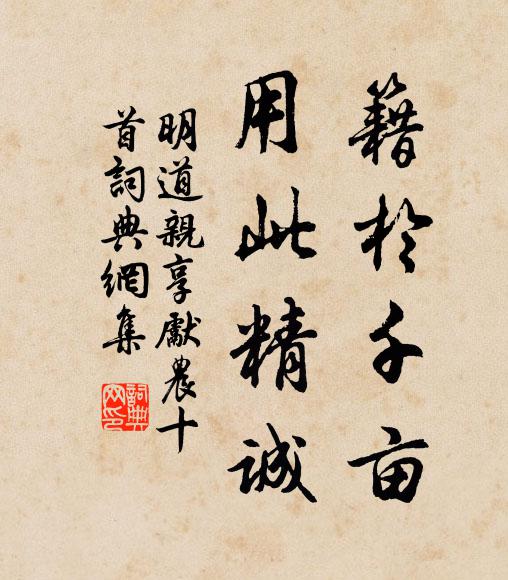 籍於千亩
用此精誠
明道親享獻農十
首詞典網集
詞典網印